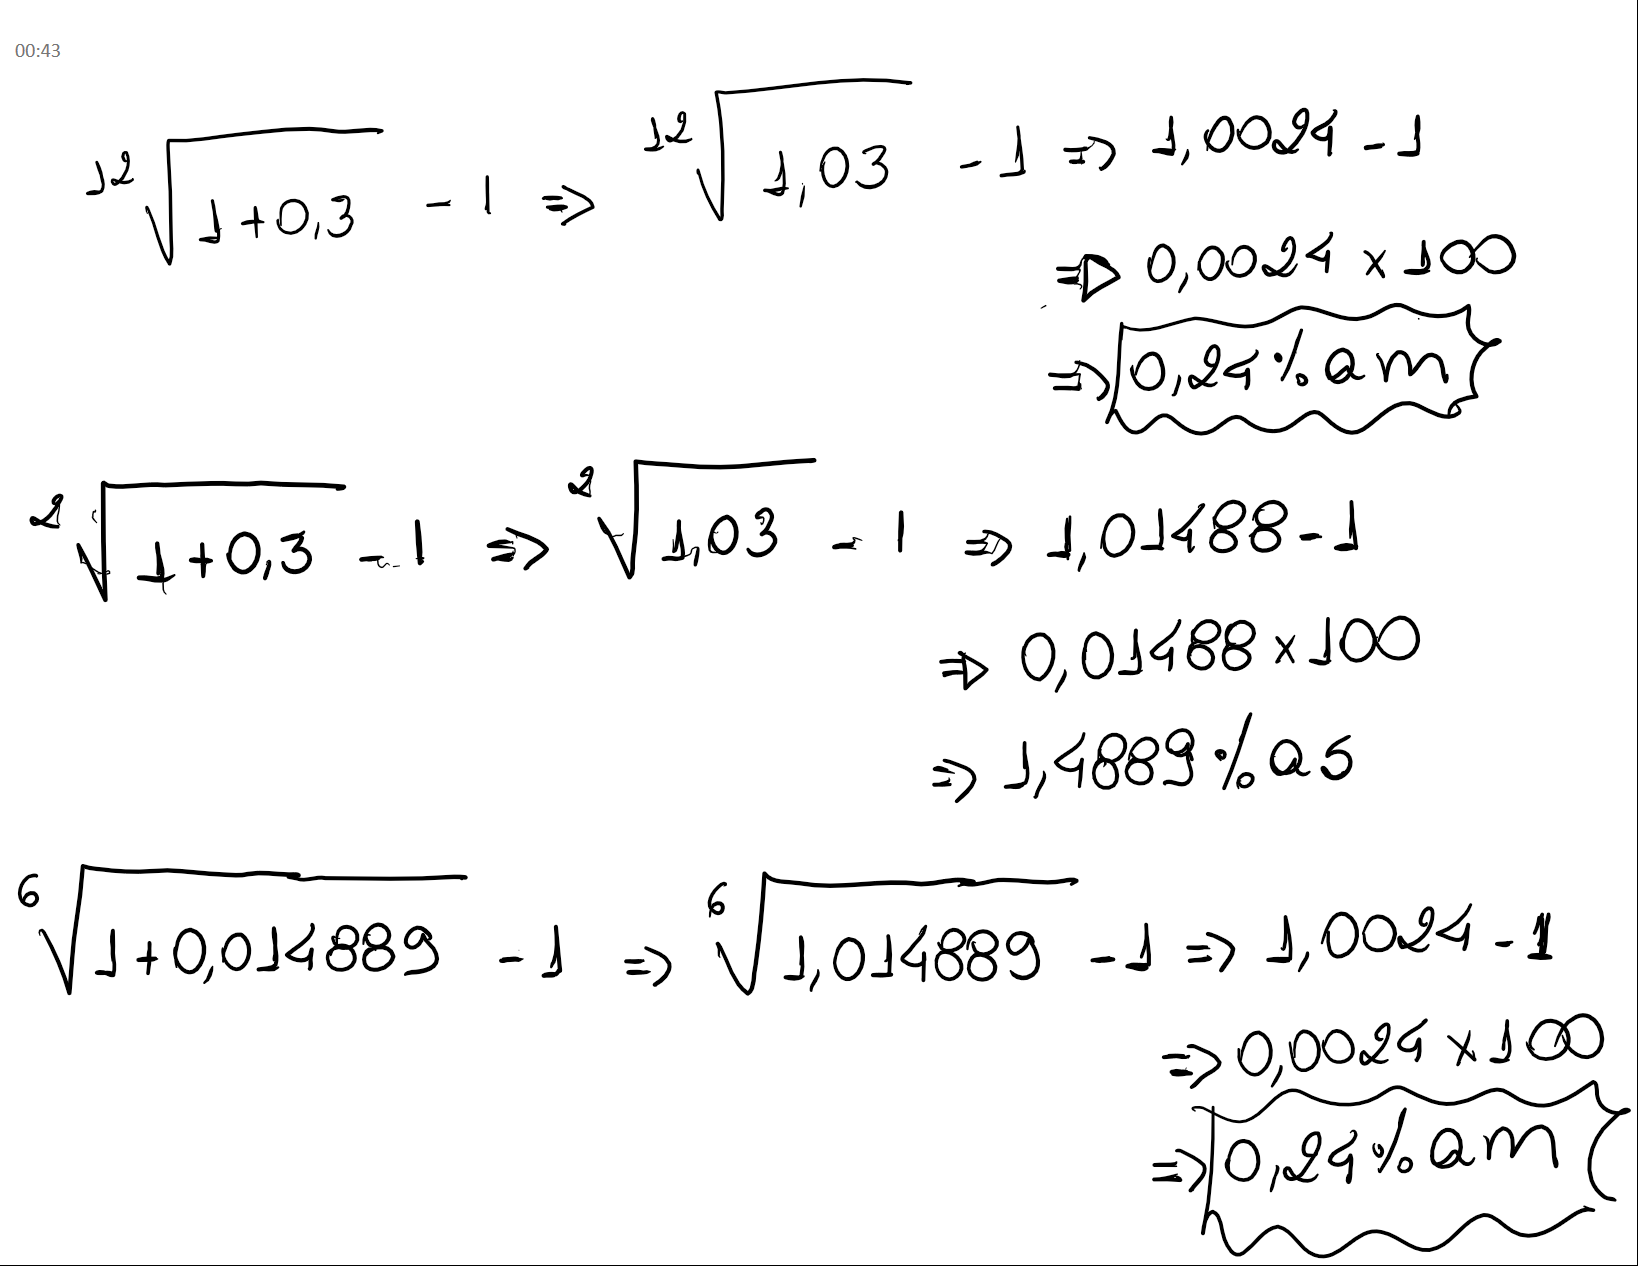 00:43
¹²√(1+0,3) - 1 => ¹²√(1,03) - 1 => 1,0024 - 1
=> 0,0024 x 100
=> 0,24% am
²√(1+0,3) - 1 => ²√(1,03) - 1 => 1,01488 - 1
=> 0,01488 x 100
=> 1,4889% as
⁶√(1+0,014889) - 1 => ⁶√(1,014889) - 1 => 1,0024 - 1
=> 0,0024 x 100
=> 0,24% am